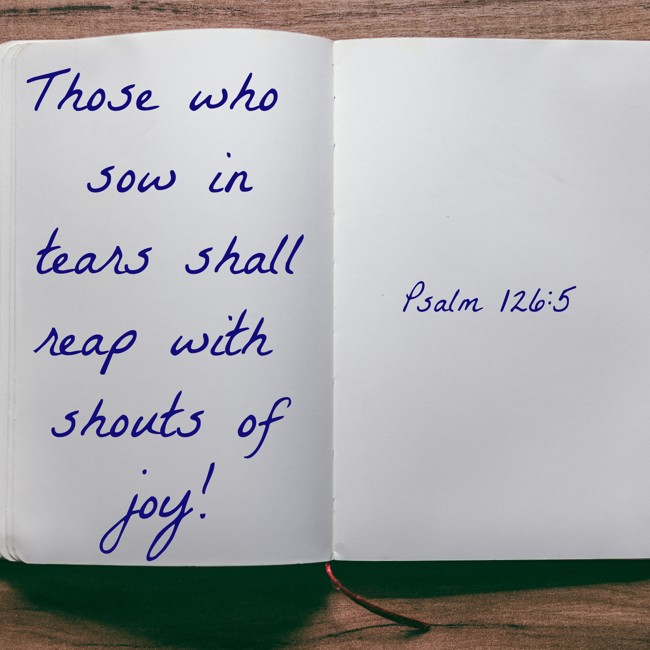 Those who
sow in
tears shall
reap with
shouts of
joy!
Psalm 126:5